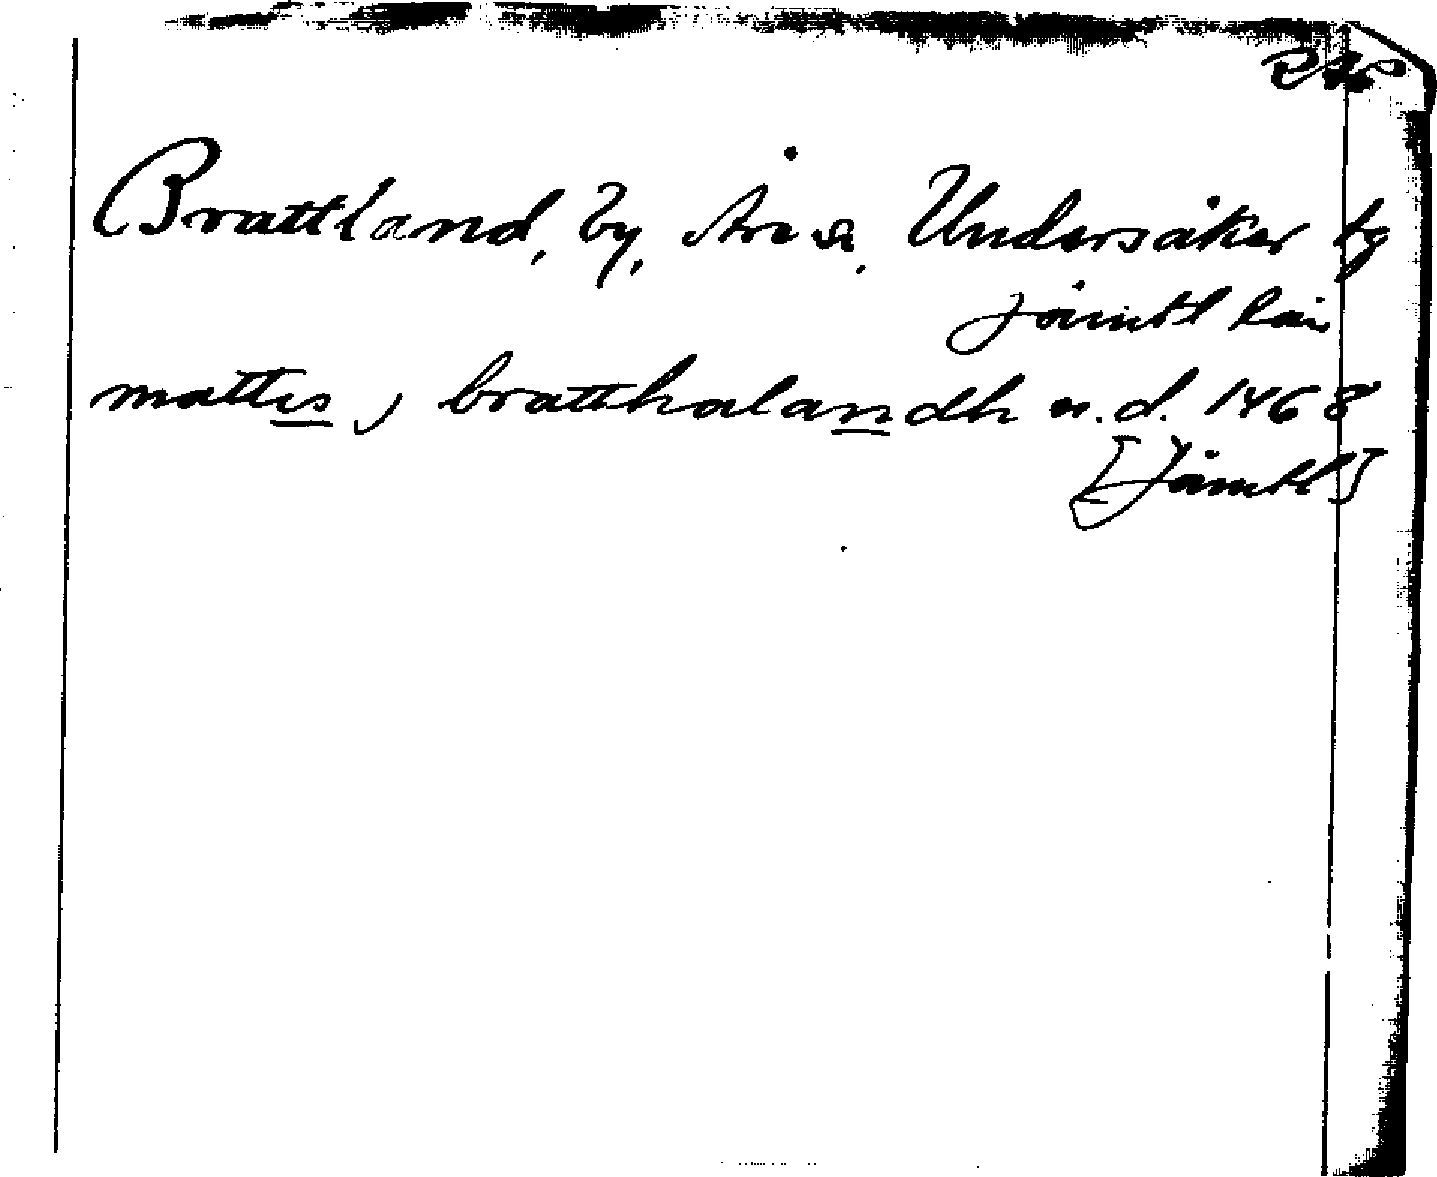 Brattland, by, Åre sn, Undersåker tg
Jämtl län
mattis j bratthalandh u.d. 1468
[Jämtl]